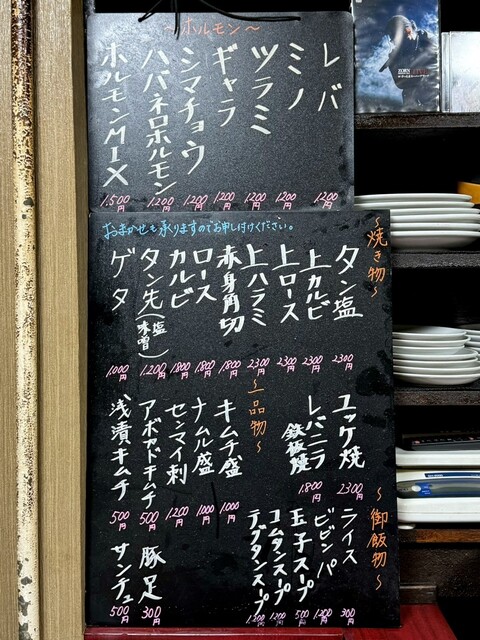 ～ホルモン～
レバ 1200円
ミノ 1200円
ツラミ 1200円
ギャラ 1200円
シマチョウ 1200円
ハバネロホルモン 1200円
ホルモンMIX 1,500円
おまかせも承りますのでお申し付けください。
～焼き物～
タン塩 2300円
上カルビ 2300円
上ロース 2300円
上ハラミ 2300円
赤身角切 1800円
ロース 1800円
カルビ 1800円
タン先(塩味噌) 1,200円
ゲタ 1000円
ユッケ焼 2300円
レバニラ鉄板焼 1.800円
～一品物～
キムチ盛 1000円
ナムル盛 1000円
センマイ刺 1200円
アボカドキムチ 500円
浅漬キムチ 500円
豚足 300円
サンチュ 500円
～御飯物～
ライス 300円
ビビンバ 1200円
玉子スープ 500円
コムタンスープ 1200円
テグタンスープ 1,200円